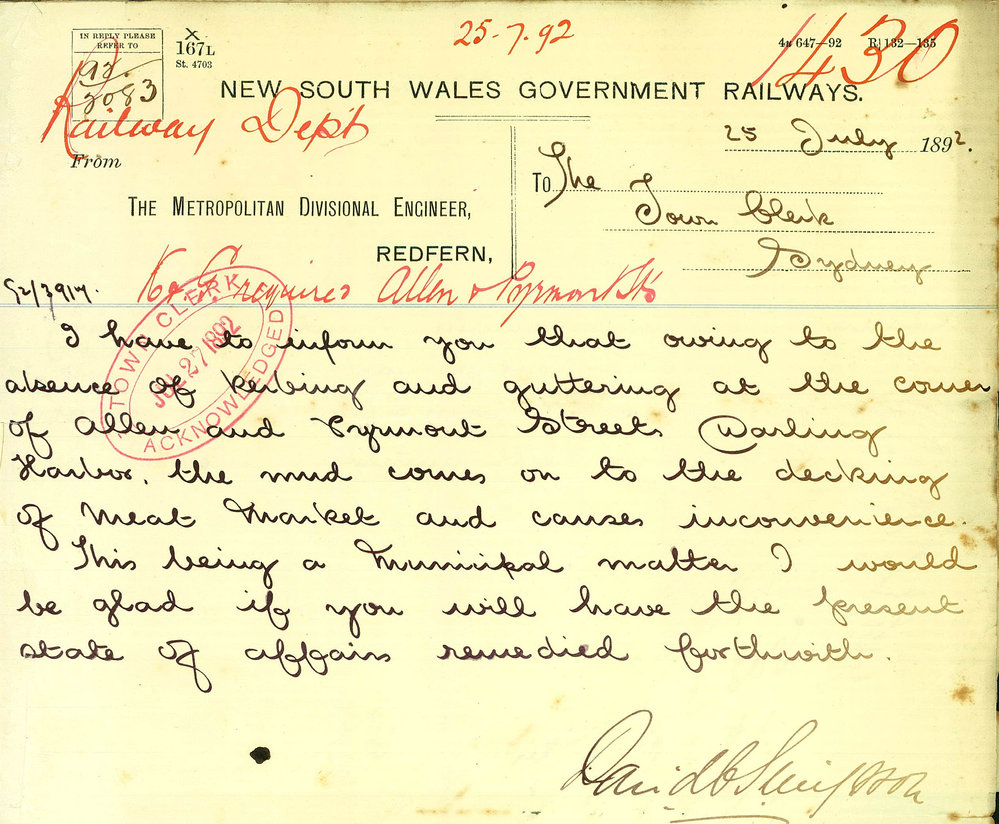 25-7.92
IN REPLY PLEASE
REFER TO
92.
3083
X
167L
St. 4703
4n 647—92 R|132—135
1430
NEW SOUTH WALES GOVERNMENT RAILWAYS.
Railway Dept
25 July 1892.
From
To The
Town Clerk
Sydney
THE METROPOLITAN DIVISIONAL ENGINEER,
REDFERN,
92/3917.
K & G requires Allen & Pyrmont Sts
TOWN CLERK
JUL 27 1892
ACKNOWLEDGED
I have to inform you that owing to the
absence of kerbing and guttering at the corner
of Allen and Pyrmont Streets Darling
Harbor, the mud comes on to the decking
of Meat Market and causes inconvenience.
This being a Municipal matter I would
be glad if you will have the present
state of affairs remedied forthwith.
David C Simpson